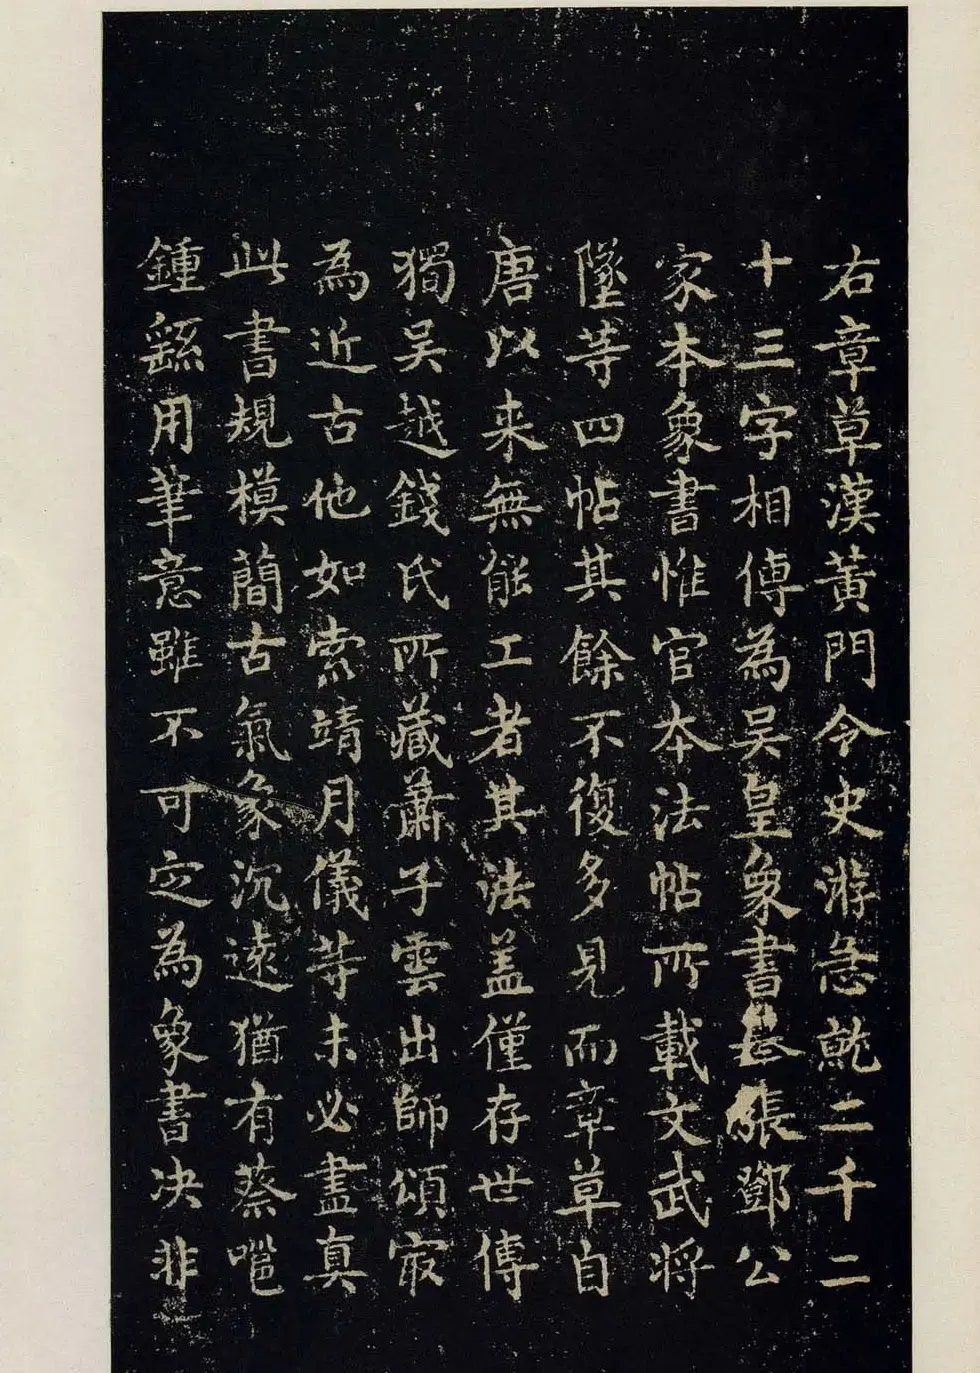 右章草漢黃門令史游急就二千二
十三字相傳為吳皇象書叅張鄧公
家本象書惟官本法帖所載文武將
墜等四帖其餘不復多見而章草自
唐以来無能工者其法盖僅存世傳
獨吳越錢氏所藏蕭子雲出師頌㝡
為近古他如索靖月儀等未必盡真
此書規模簡古氣象沉遠猶有蔡邕
鍾繇用筆意雖不可定為象書决非